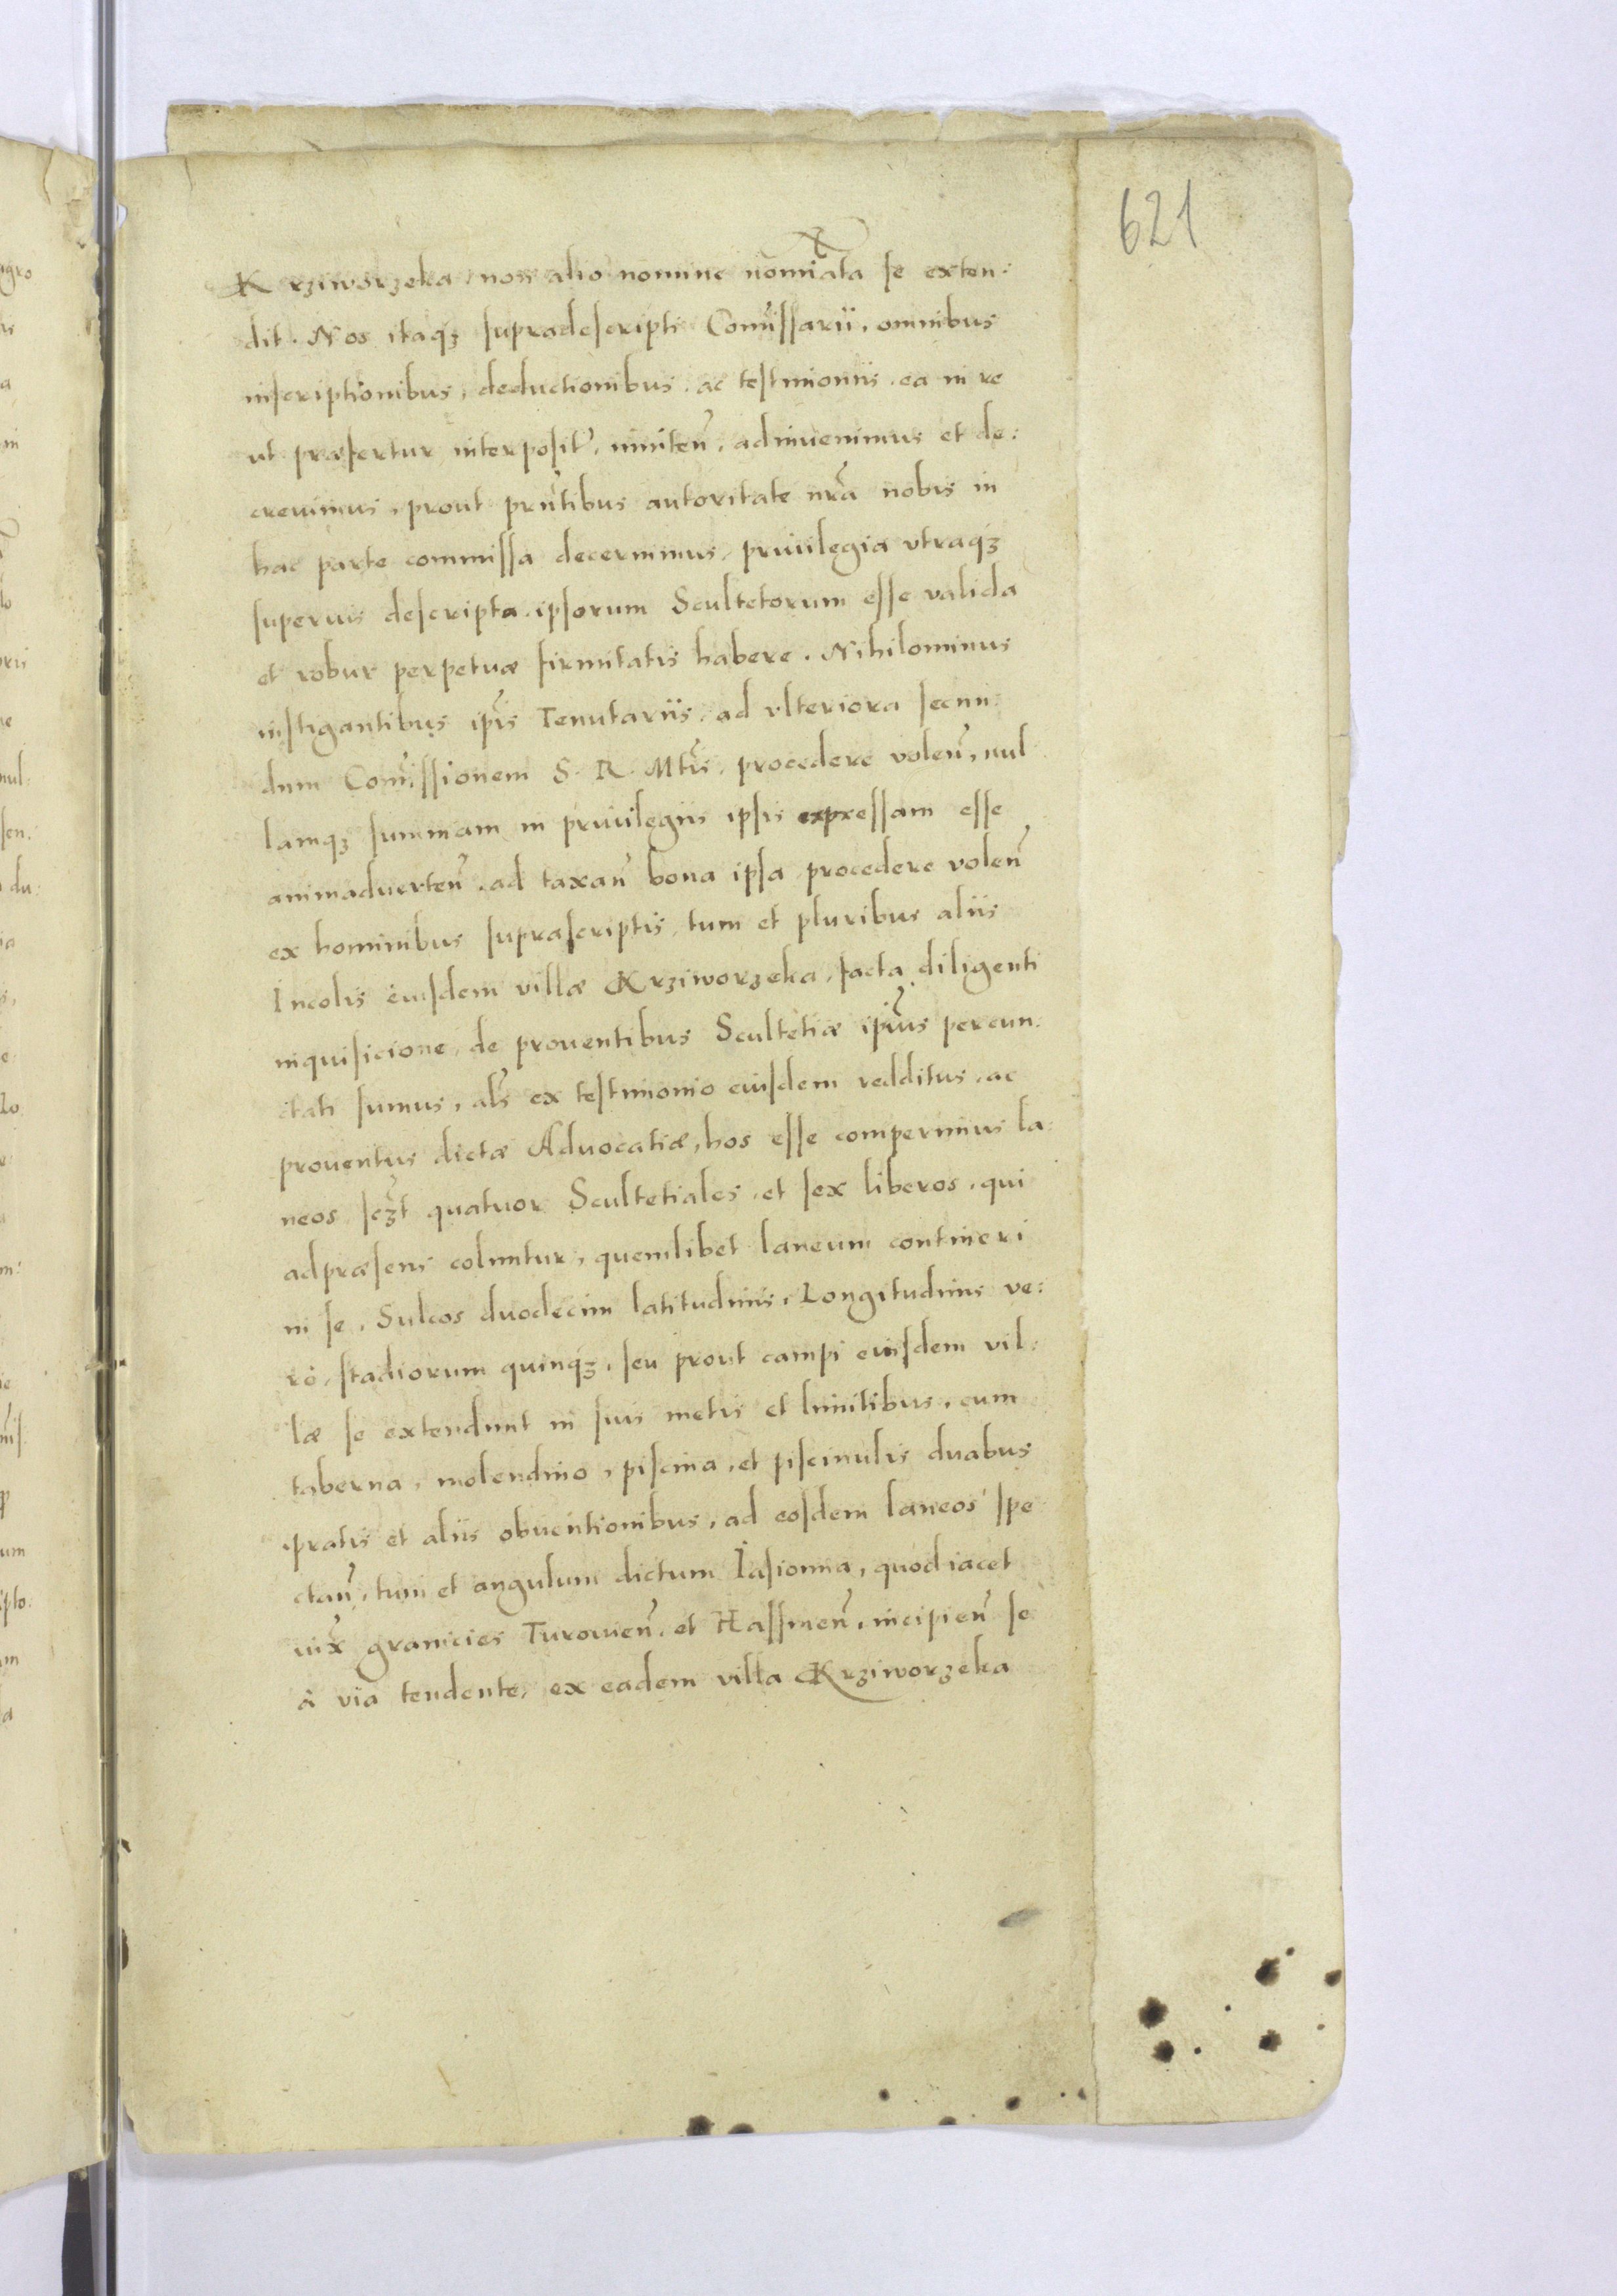 621
Krziworzeka, non alio nomine nomiata se exten:
dit. Nos itaqꝫ supradescripti Comissarii, omnibus
inscriptionibus, deductionibus, ac testimoniis, ea in re
ut præfertur interposit, inniten, adinuenimus et de:
creuimus, prout pntibus autoritate nra nobis in
hac parte commissa decernimus, priuilegia vtraqꝫ
superius descripta, ipsorum Scultetorum esse valida
et robur perpetuæ firmitatis habere. Nihilominus
instigantibus ipis Tenutariis, ad vlteriora secun:
dum Comissionem S. R. Mtis, procedere volen, nul
lamqꝫ summam in priuilegiis ipsis expressam esse
animaduerten, ad taxan bona ipsa procedere volen
ex hominibus suprascriptis, tum et pluribus aliis
Incolis eiusdem villæ Krziworzeka, facta diligenti
inquisicione, de prouentibus Scultetiæ ipius percun:
ctati sumus, als ex testimonio eiusdem redditus, ac
prouentus dictæ Aduocatiæ, hos esse comperimus la:
neos scꝫt quatuor Scultetiales, et sex liberos, qui
adpræsens coluntur, quemlibet laneum contineri
in se, Sulcos duodecim latitudinis, Longitudinis ve:
rò, stadiorum quinqꝫ, seu prout campi eiusdem vil:
læ se extendunt in suis metis et limitibus, cum
taberna, molendino, piscina, et piscinulis duabus
pratis et aliis obuentionibus, ad eosdem laneos spe
ctan, tum et angulum dictum Iasionna, quod iacet
iux granicies Turowien, et Hassmen, incipien se
à via tendente, ex eadem villa Krziworzeka